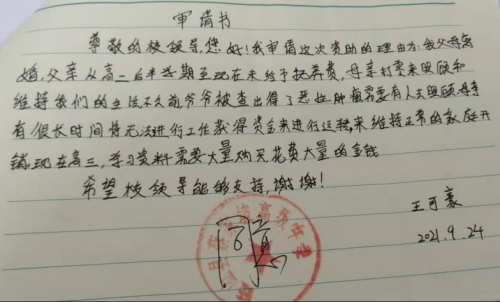 申请书
尊敬的校领导,您好!我申请这次资助的理由为:我父母离
婚,父亲从高一后半学期至现在未给予抚养费,母亲打零来照顾和
维持我们的生活不久前爷爷被查出得了恶性肿瘤需要有人去照顾,母亲
有很长时间将无法进行工作获得资金来进行运转,来维持正常的家庭开
销,现在高三,学习资料需要大量购买花费大量的金钱
希望校领导能够支持,谢谢!
王可豪
2021.9.24
同意
高级中学